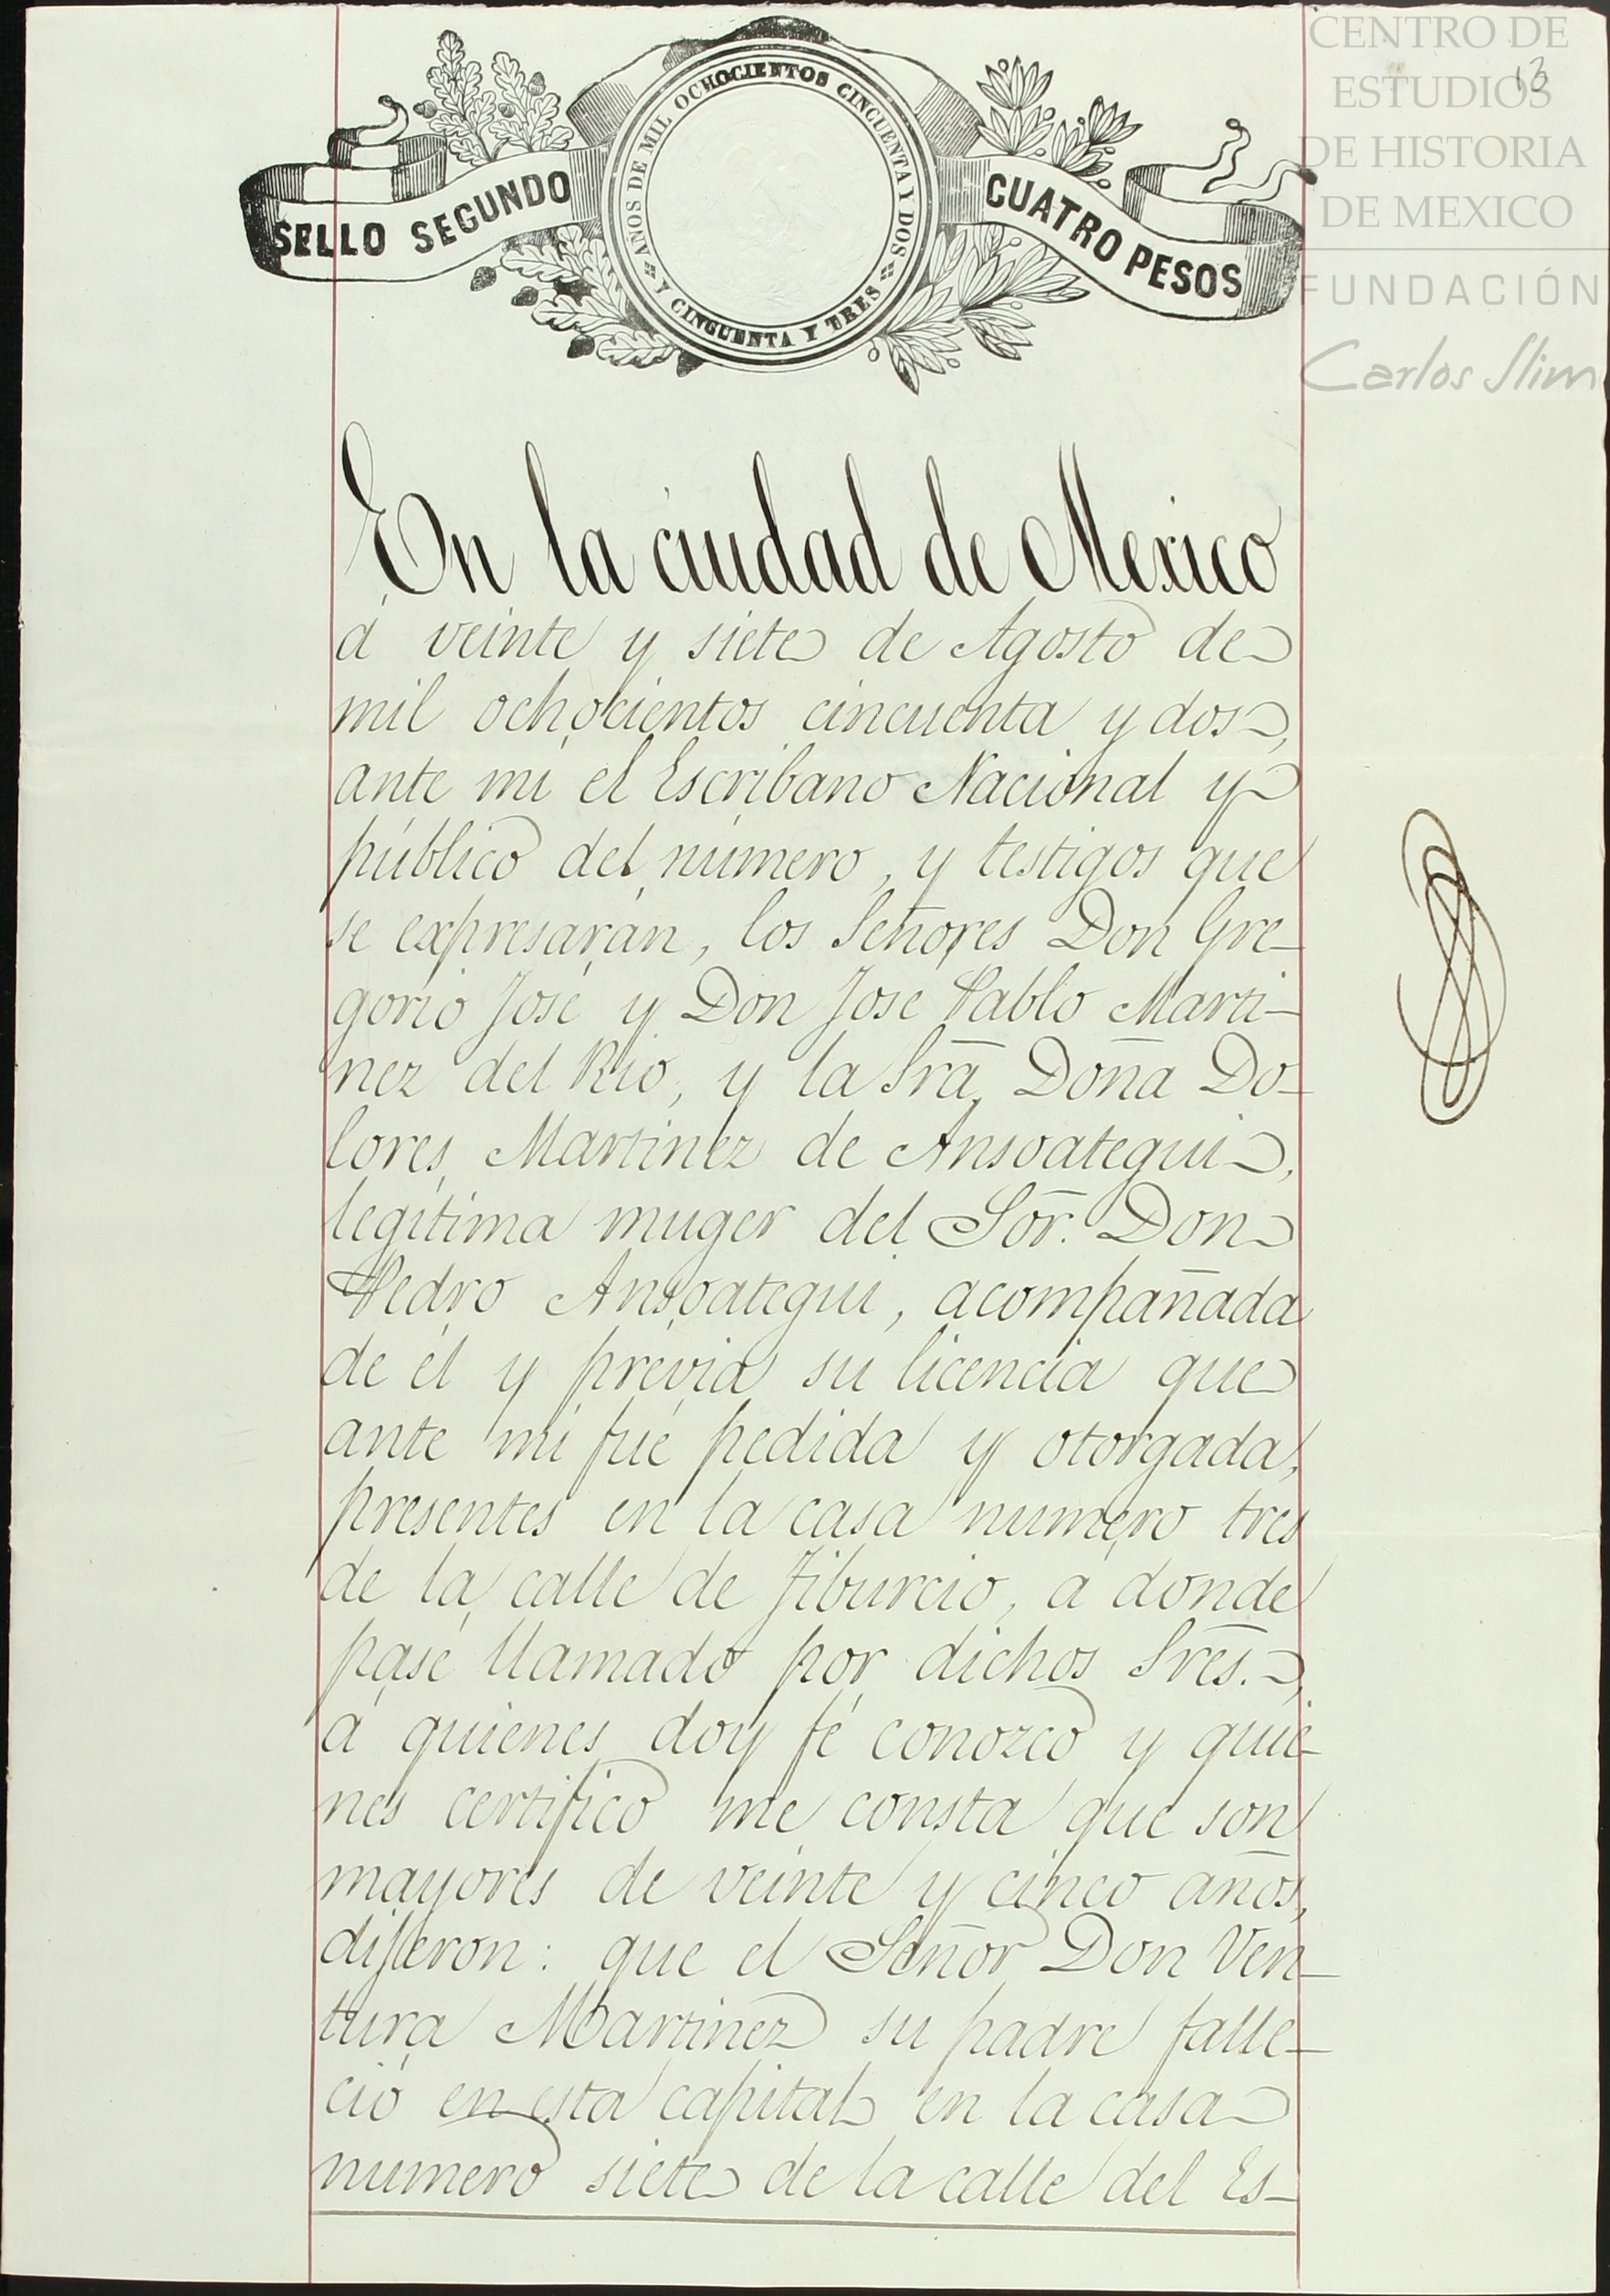 CENTRO DE
ESTUDIOS
DE HISTORIA
DE MEXICO
FUNDACIÓN
Carlos Slim
13
SELLO SEGUNDO
AÑOS DE MIL OCHOCIENTOS CINCUENTA Y DOS
Y CINCUENTA Y TRES
CUATRO PESOS
En la ciudad de Mexico
á veinte y siete de Agosto de
mil ochocientos cincuenta y dos,
ante mi el Escribano Nacional y
público del número, y testigos que
se expresarán, los Señores Don Gre-
gorio José y Don José Pablo Marti-
nez del Rio, y la Srā Doña Do-
lores Martinez de Ansoategui,
legítima muger del Sōr. Don
Pedro Ansoategui, acompañada
de él y prévia su licencia que
ante mí fué pedida y otorgada,
presentes en la casa número tres
de la calle de Tiburcio, a donde
pasé llamado por dichos Srēs.,
á quienes doy fé conozco y quie-
nes certifico me consta que son
mayores de veinte y cinco años,
dijeron: que el Señor Don Ven-
tura Martinez su padre falle-
ció en esta capital en la casa
numero siete de la calle del Es-